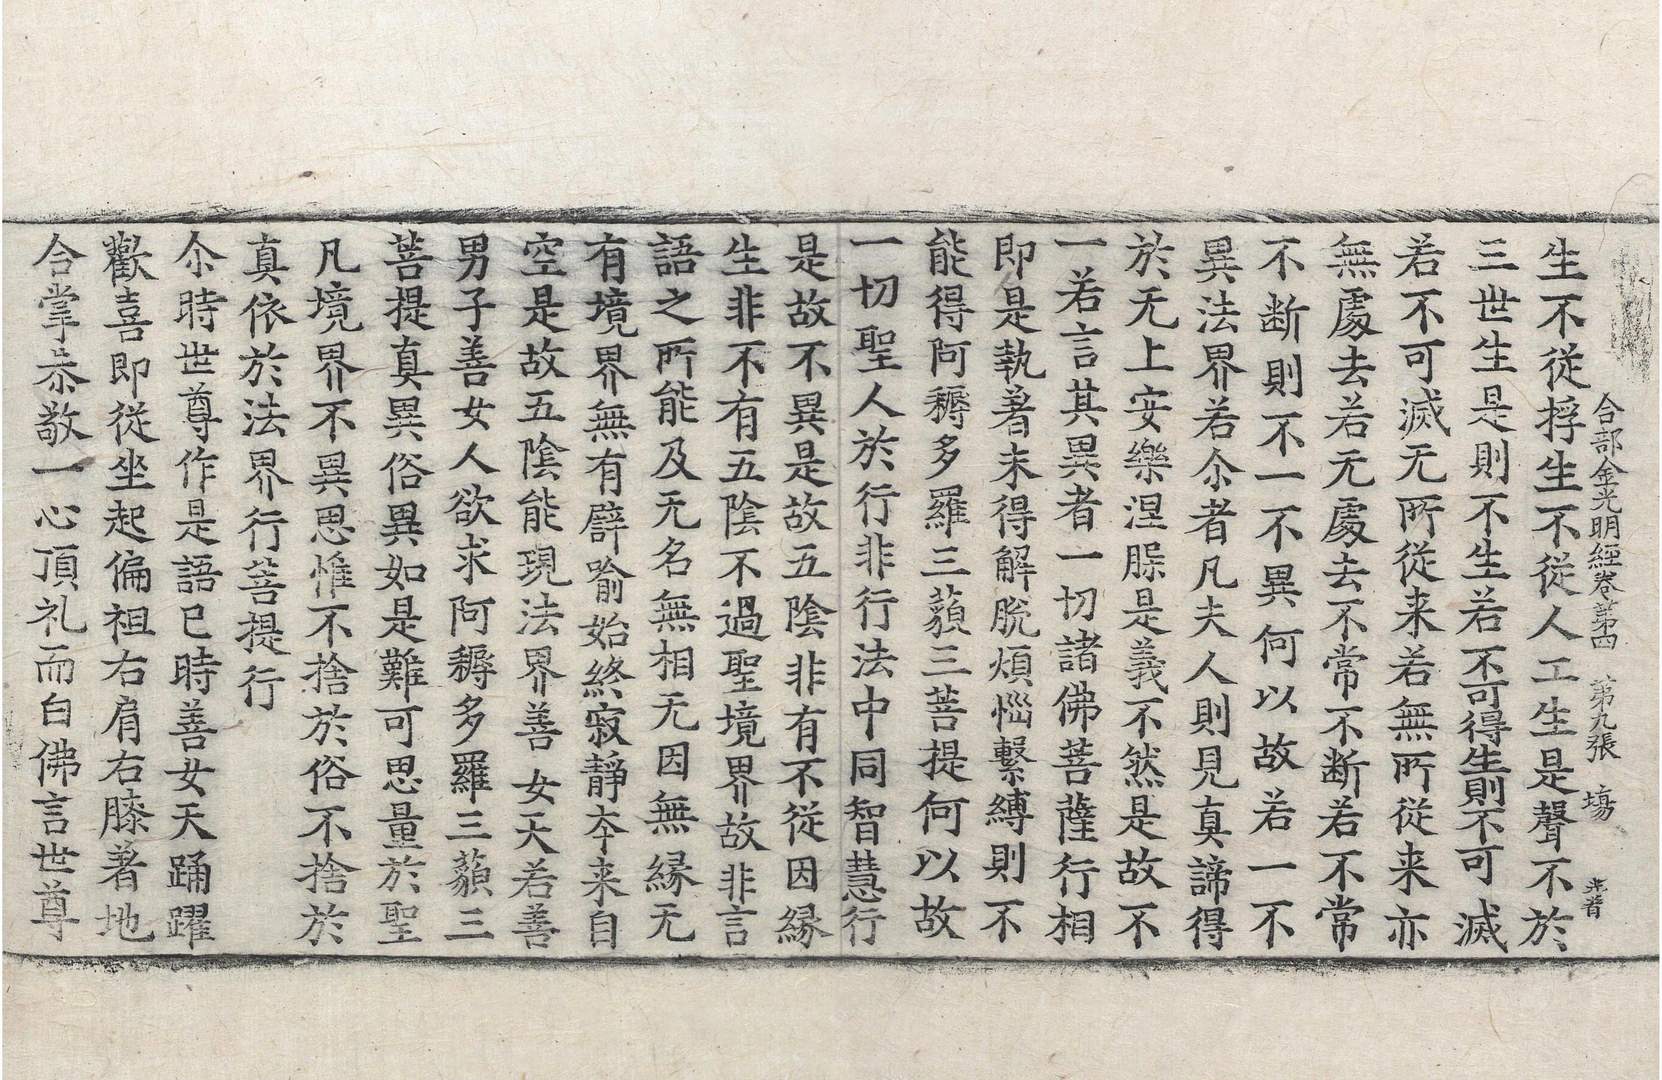 合部金光明經卷第四　第九張　塲　來普
生不從捊生不從人工生是聲不於
三世生是則不生若不可得生則不可滅
若不可滅无所從来若無所從来亦
無處去若无處去不常不断若不常
不断則不一不異何以故若一不
異法界若尒者凡夫人則見真諦得
於无上安樂涅腺是義不然是故不
一若言其異者一切諸佛菩薩行相
即是執著未得解脫煩惱繫縛則不
能得阿耨多羅三藐三菩提何以故
一切聖人於行非行法中同智慧行
是故不異是故五陰非有不從因緣
生非不有五陰不過聖境界故非言
語之所能及无名無相无因無緣无
有境界無有譬喻始終寂靜夲来自
空是故五陰能現法界善女天若善
男子善女人欲求阿耨多羅三藐三
菩提真異俗異如是難可思量於聖
凡境界不異思惟不捨於俗不捨於
真依於法界行菩提行
尒時世尊作是語已時善女天踊躍
歡喜即從坐起偏袒右肩右膝著地
合掌恭敬一心頂礼而白佛言世尊